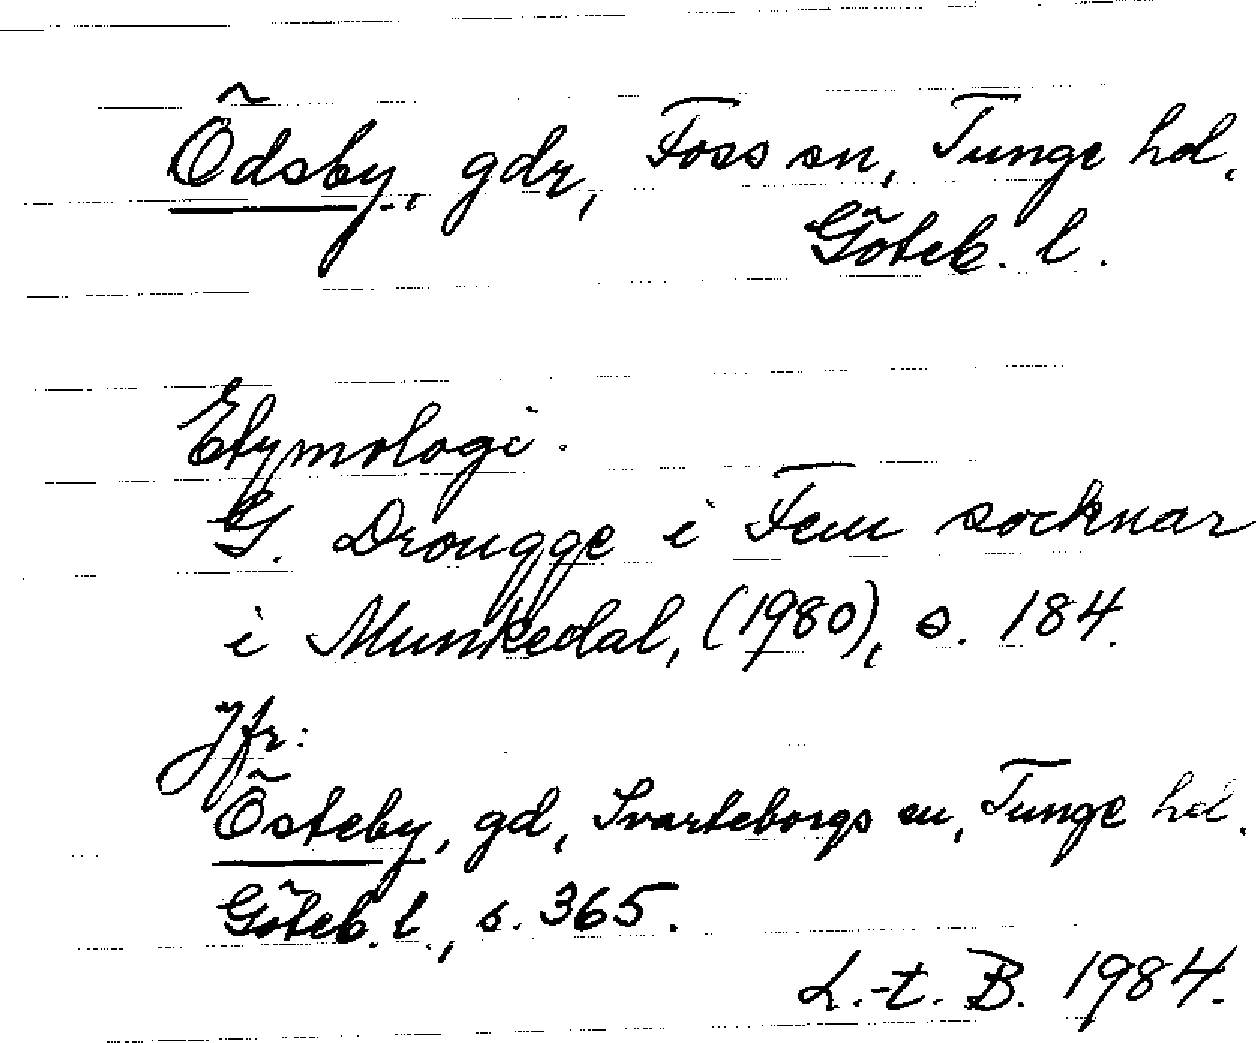 Ödsby, gdr, Foss sn, Tunge hd.
Göteb. l.
Etymologi.
G. Drougge i Fem socknar
i Munkedal, (1980), s. 184.
Jfr:
Östeby, gd, Svarteborgs sn, Tunge hd.
Göteb. l., s. 365.
L.-t. B. 1984.